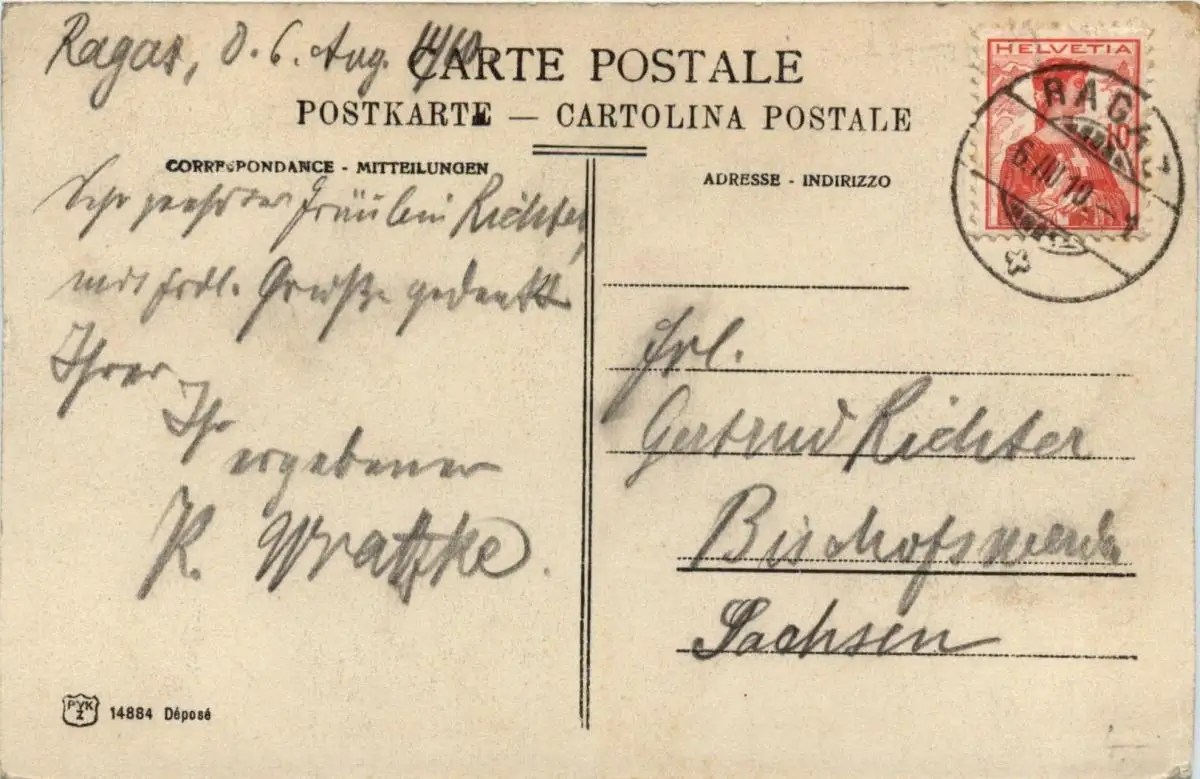 Ragaz, d. 6. Aug. 1910
CARTE POSTALE
POSTKARTE — CARTOLINA POSTALE
CORRESPONDANCE - MITTEILUNGEN
ADRESSE - INDIRIZZO
HELVETIA
10
RAGAZ
6. VIII 10 - 1
Sehr geehrtes Fräulein Richter,
mit frdl. Grüße gedenkt
Ihrer
Ihr
ergebener
R. Wratzke.
Frl.
Gertrud Richter
Bischofswerda
Sachsen
PVK
Z
14884 Déposé